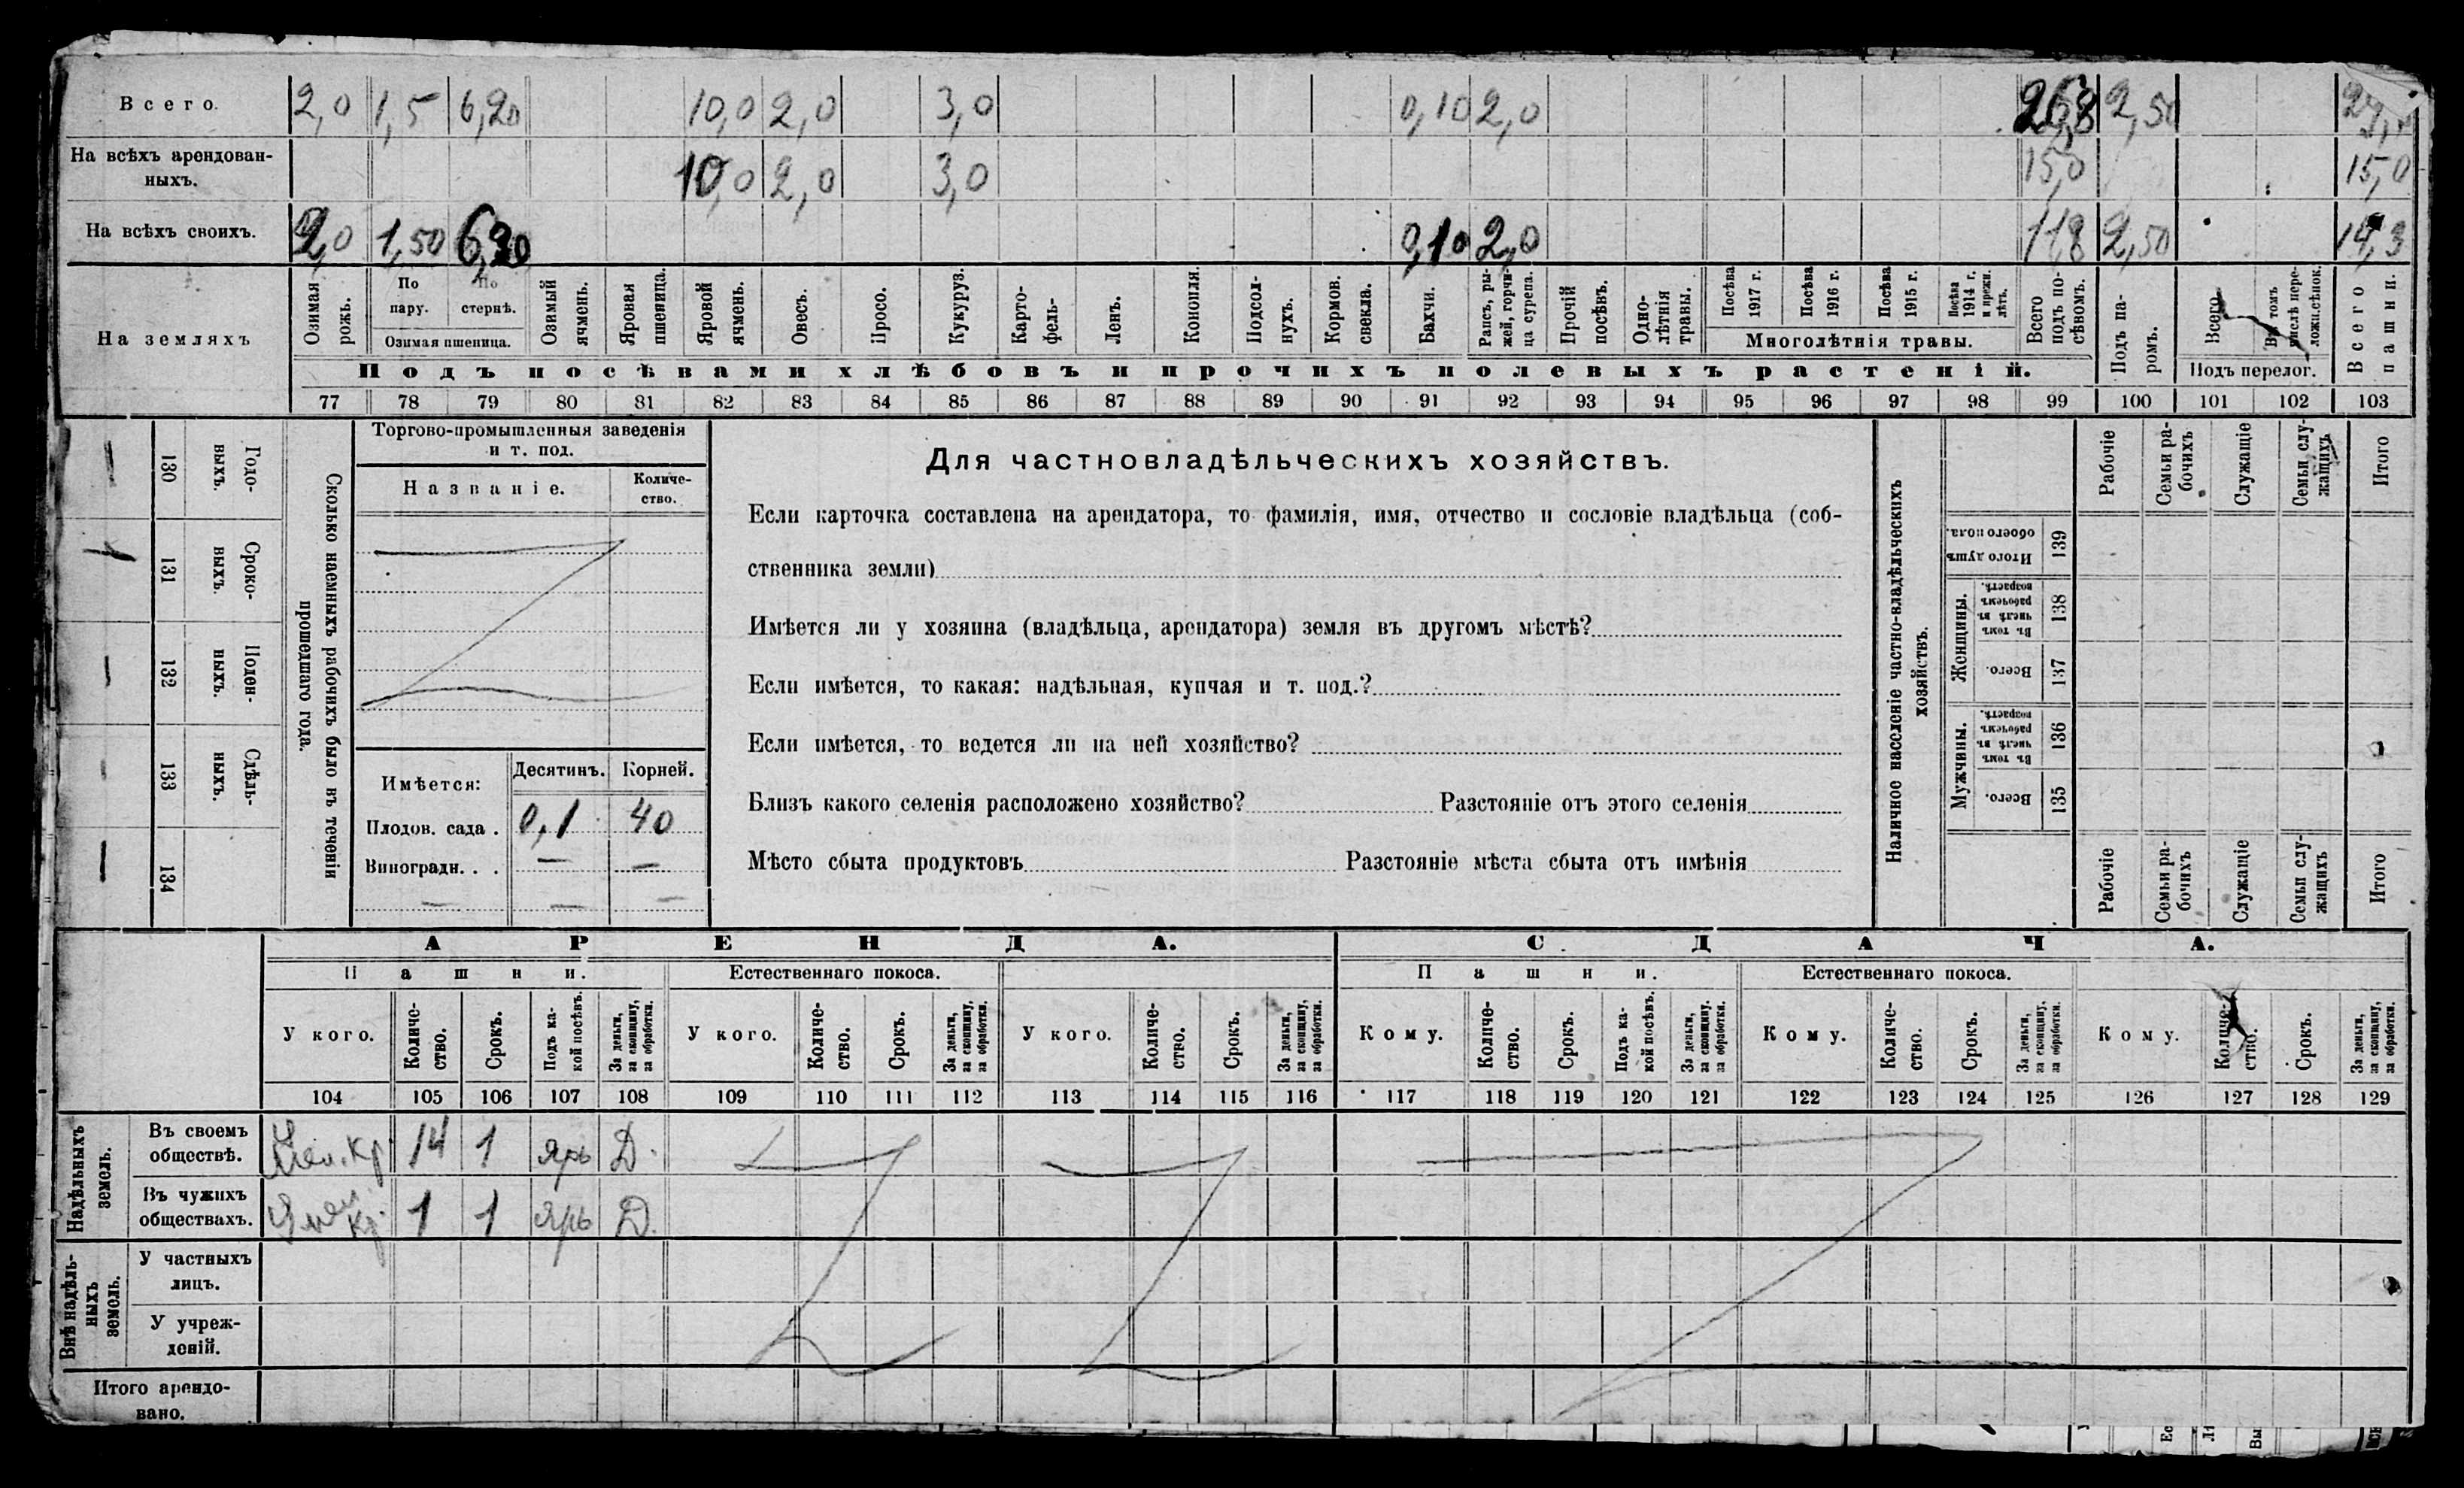 Всего. 2,0 1,5 6,20 10,0 2,0 3,0 0,10 2,0 26,8 2,50
На всѣхъ арендован-
ныхъ. 10,0 2,0 3,0 15,0 15,0
На всѣхъ своихъ. 2,0 1,50 0,10 2,0 11,8 2,50 14,3
На земляхъ
Озимая рожь.
По пару.
По стернѣ.
Озимая пшеница.
Озимый ячмень.
Яровая пшеница.
Яровой ячмень.
Овесъ.
Просо.
Кукуруз.
Карто-
фель-
Ленъ.
Конопля.
Подсол-
нухъ.
Кормов. свекла.
Бахчи.
Рапсъ, ры-
жей, горчи-
ца сурепа.
Прочій посѣвъ.
Одно-
лѣтнія травы.
Посѣва 1917 г.
Посѣва 1916 г.
Посѣва 1915 г.
Посѣва 1914 г. и прежн. лѣтъ.
Многолѣтнія травы.
Всего подъ по-
сѣвомъ.
Подъ посѣвами хлѣбовъ и прочихъ полевыхъ растеній.
Подъ па-
ромъ.
Всего
Въ томъ числѣ пере-
ложн.сѣнок.
Подъ перелог.
Всего пашни.
77 78 79 80 81 82 83 84 85 86 87 88 89 90 91 92 93 94 95 96 97 98 99 100 101 102 103
130 Годо-
ныхъ.
131 Сроко-
ныхъ.
132 Поден-
ныхъ.
133 Сдѣль-
ныхъ.
134
Сколько наемныхъ рабочихъ было въ теченіи
прошедшаго года.
Торгово-промышленныя заведенія
и т. под.
Названіе.
Количе-
ство.
Имѣется: Десятинъ. Корней.
Плодов. сада . 0,1 40
Виноградн. . . — —
— — —
Для частновладѣльческихъ хозяйствъ.
Если карточка составлена на арендатора, то фамилія, имя, отчество и сословіе владѣльца (соб-
ственника земли)
Имѣется ли у хозяина (владѣльца, арендатора) земля въ другомъ мѣстѣ?
Если имѣется, то какая: надѣльная, купчая и т. под.?
Если имѣется, то ведется ли на ней хозяйство?
Близъ какого селенія расположено хозяйство? Разстояніе отъ этого селенія
Мѣсто сбыта продуктовъ Разстояніе мѣста сбыта отъ имѣнія
Наличное населеніе частно-владѣльческихъ
хозяйствъ.
Рабочіе
Семьи ра-
бочихъ
Служащіе
Семьи слу-
жащихъ
Итого
Итого душъ обоего пола. 139
Женщины.
Въ томъ числѣ въ рабочемъ возрастѣ. 138
Всего. 137
Мужчины.
Въ томъ числѣ въ рабочемъ возрастѣ. 136
Всего. 135
Рабочіе
Семьи ра-
бочихъ
Служащіе
Семьи слу-
жащихъ
Итого
АРЕНДА. СДАЧА.
Пашни. Естественнаго покоса. Пашни. Естественнаго покоса.
У кого.
Количе-
ство.
Срокъ.
Подъ ка-
кой посѣвъ.
За деньги, за скопщину, за обработки.
У кого.
Количе-
ство.
Срокъ.
За деньги, за скопщину, за обработки.
У кого.
Количе-
ство.
Срокъ.
За деньги, за скопщину, за обработки.
Кому.
Количе-
ство.
Срокъ.
Подъ ка-
кой посѣвъ.
За деньги, за скопщину. за обработки.
Кому.
Количе-
ство.
Срокъ.
За деньги, за скопщину, за обработки.
Кому.
Количе-
ство.
Срокъ.
За деньги, за скопщину, за обработки.
104 105 106 107 108 109 110 111 112 113 114 115 116 117 118 119 120 121 122 123 124 125 126 127 128 129
Надѣльныхъ
земель.
Въ своемъ
обществѣ. кр. 14 1 Ярь Д.
Въ чужихъ
обществахъ. кр. 1 1 Ярь Д.
Внѣ надѣль-
ныхъ
земель.
У частныхъ
лицъ.
У учреж-
деній.
Итого арендо-
вано.